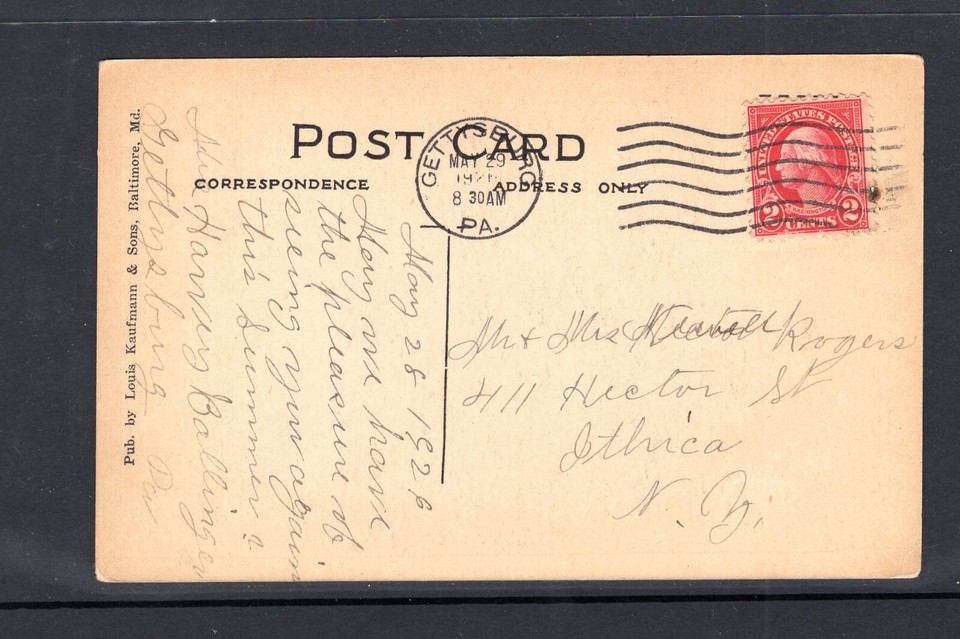 POST CARD
CORRESPONDENCE
ADDRESS ONLY
GETTYSBURG
MAY 29
8 30 AM
PA.
UNITED STATES POSTAGE
WASHINGTON
2 CENTS 2
May 28 1926
May we have
the pleasure of
seeing you again
this Summer?
Harvey Ballinger
Gettysburg Pa
Pub. by Louis Kaufmann & Sons, Baltimore, Md.
Mr & Mrs Rogers
411 Hector St
Ithica
N. Y.